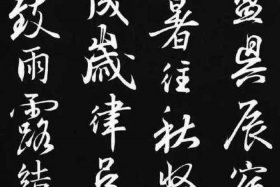 盈昃辰宿
暑往秋收
成歲律呂
致雨露結